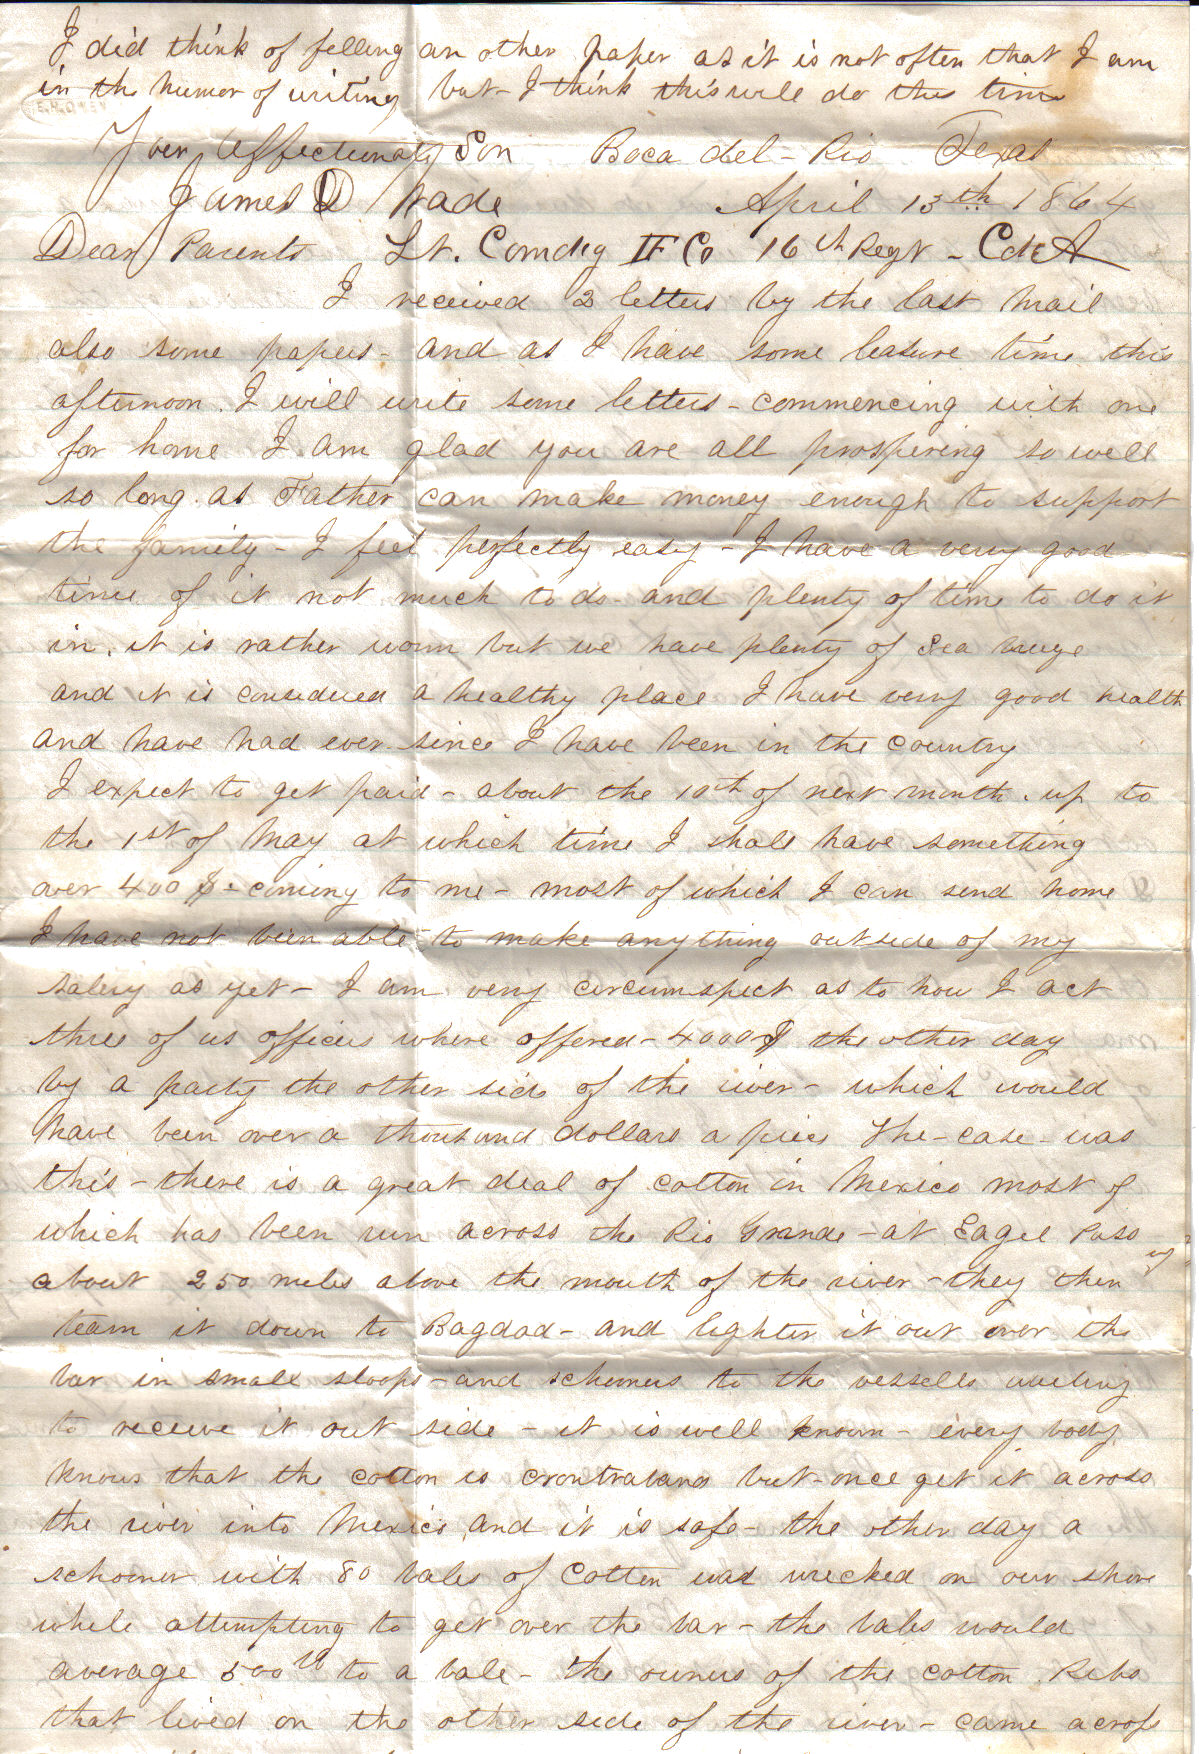 I did think of felling an other paper as it is not often that I am
in the humor of writing but I think this will do this time
E.H.OWEN
Your Affectionate Son Boca del-Rio Texas
James D Wade April 13th 1864
Dear Parents Lt. Comdg F Co 16th Regt - CdeA
I received 2 letters by the last mail
also some papers - and as I have some leasure time this
afternoon. I will write some letters - commencing with one
for home I am glad you are all prospering so well
so long as Father can make money enough to support
the family - I feel perfectly easy - I have a very good
time of it not much to do and plenty of time to do it
in. it is rather worm but we have plenty of Sea breeze
and it is considered a healthy place I have very good health
and have had ever since I have been in the country
I expect to get paid - about the 10th of next month. up to
the 1st of May at which time I shall have something
over 400 $ - coming to me - most of which I can send home
I have not been able to make anything outside of my
salery as yet - I am very circumspect as to how I act
three of us officers where offered - 4000 $ the other day
by a party the other side of the river - which would
have been over a thousand dollars a piece The - case - was
this - there is a great deal of cotton in Mexico most of
which has been run across the Rio Grande - at Eagel Pass
about 250 miles above the mouth of the river - they then
team it down to Bagdad - and lighter it out over the
bar in small sloops - and schooners to the vessells waiting
to receive it out side - it is well known - every body
knows that the cotton is crontraband but - once get it across
the river into Mexico, and it is safe - the other day a
schooner with 80 bales of Cotton was wrecked on our shore
while attempting to get over the bar - the bales would
average 500 lb to a bale - the owners of the cotton. Rebs
that lived on the other side of the river - came across